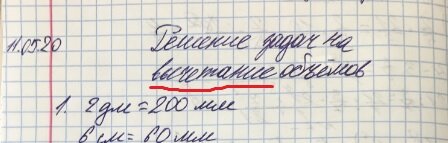 11.05.20 Решение задач на
вычетание объёмов
1. 2 дм = 200 мм
6 см = 60 мм